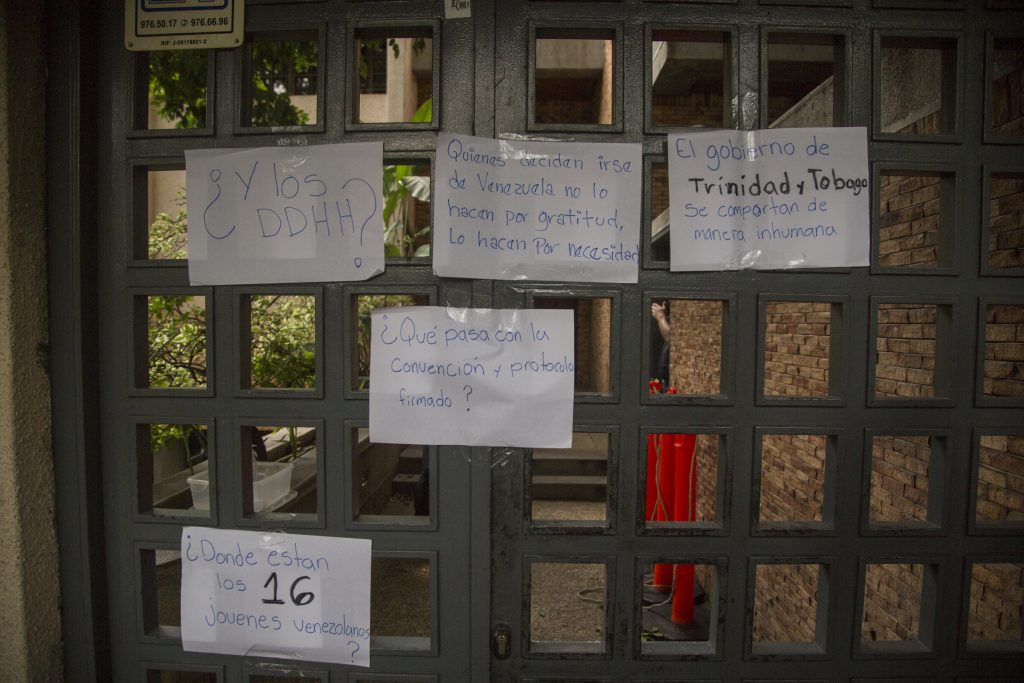 976.50.17 976.66.96
RIF: J-00178621-2
¿Y los
DDHH?
Quienes deciden irse
de Venezuela no lo
hacen por gratitud,
Lo hacen Por necesidad
El gobierno de
Trinidad y Tobago
Se comportan de
manera inhumana
¿Qué pasa con la
Convención y protocolo
firmado?
¿Donde estan
los 16
jovenes venezolanos
?